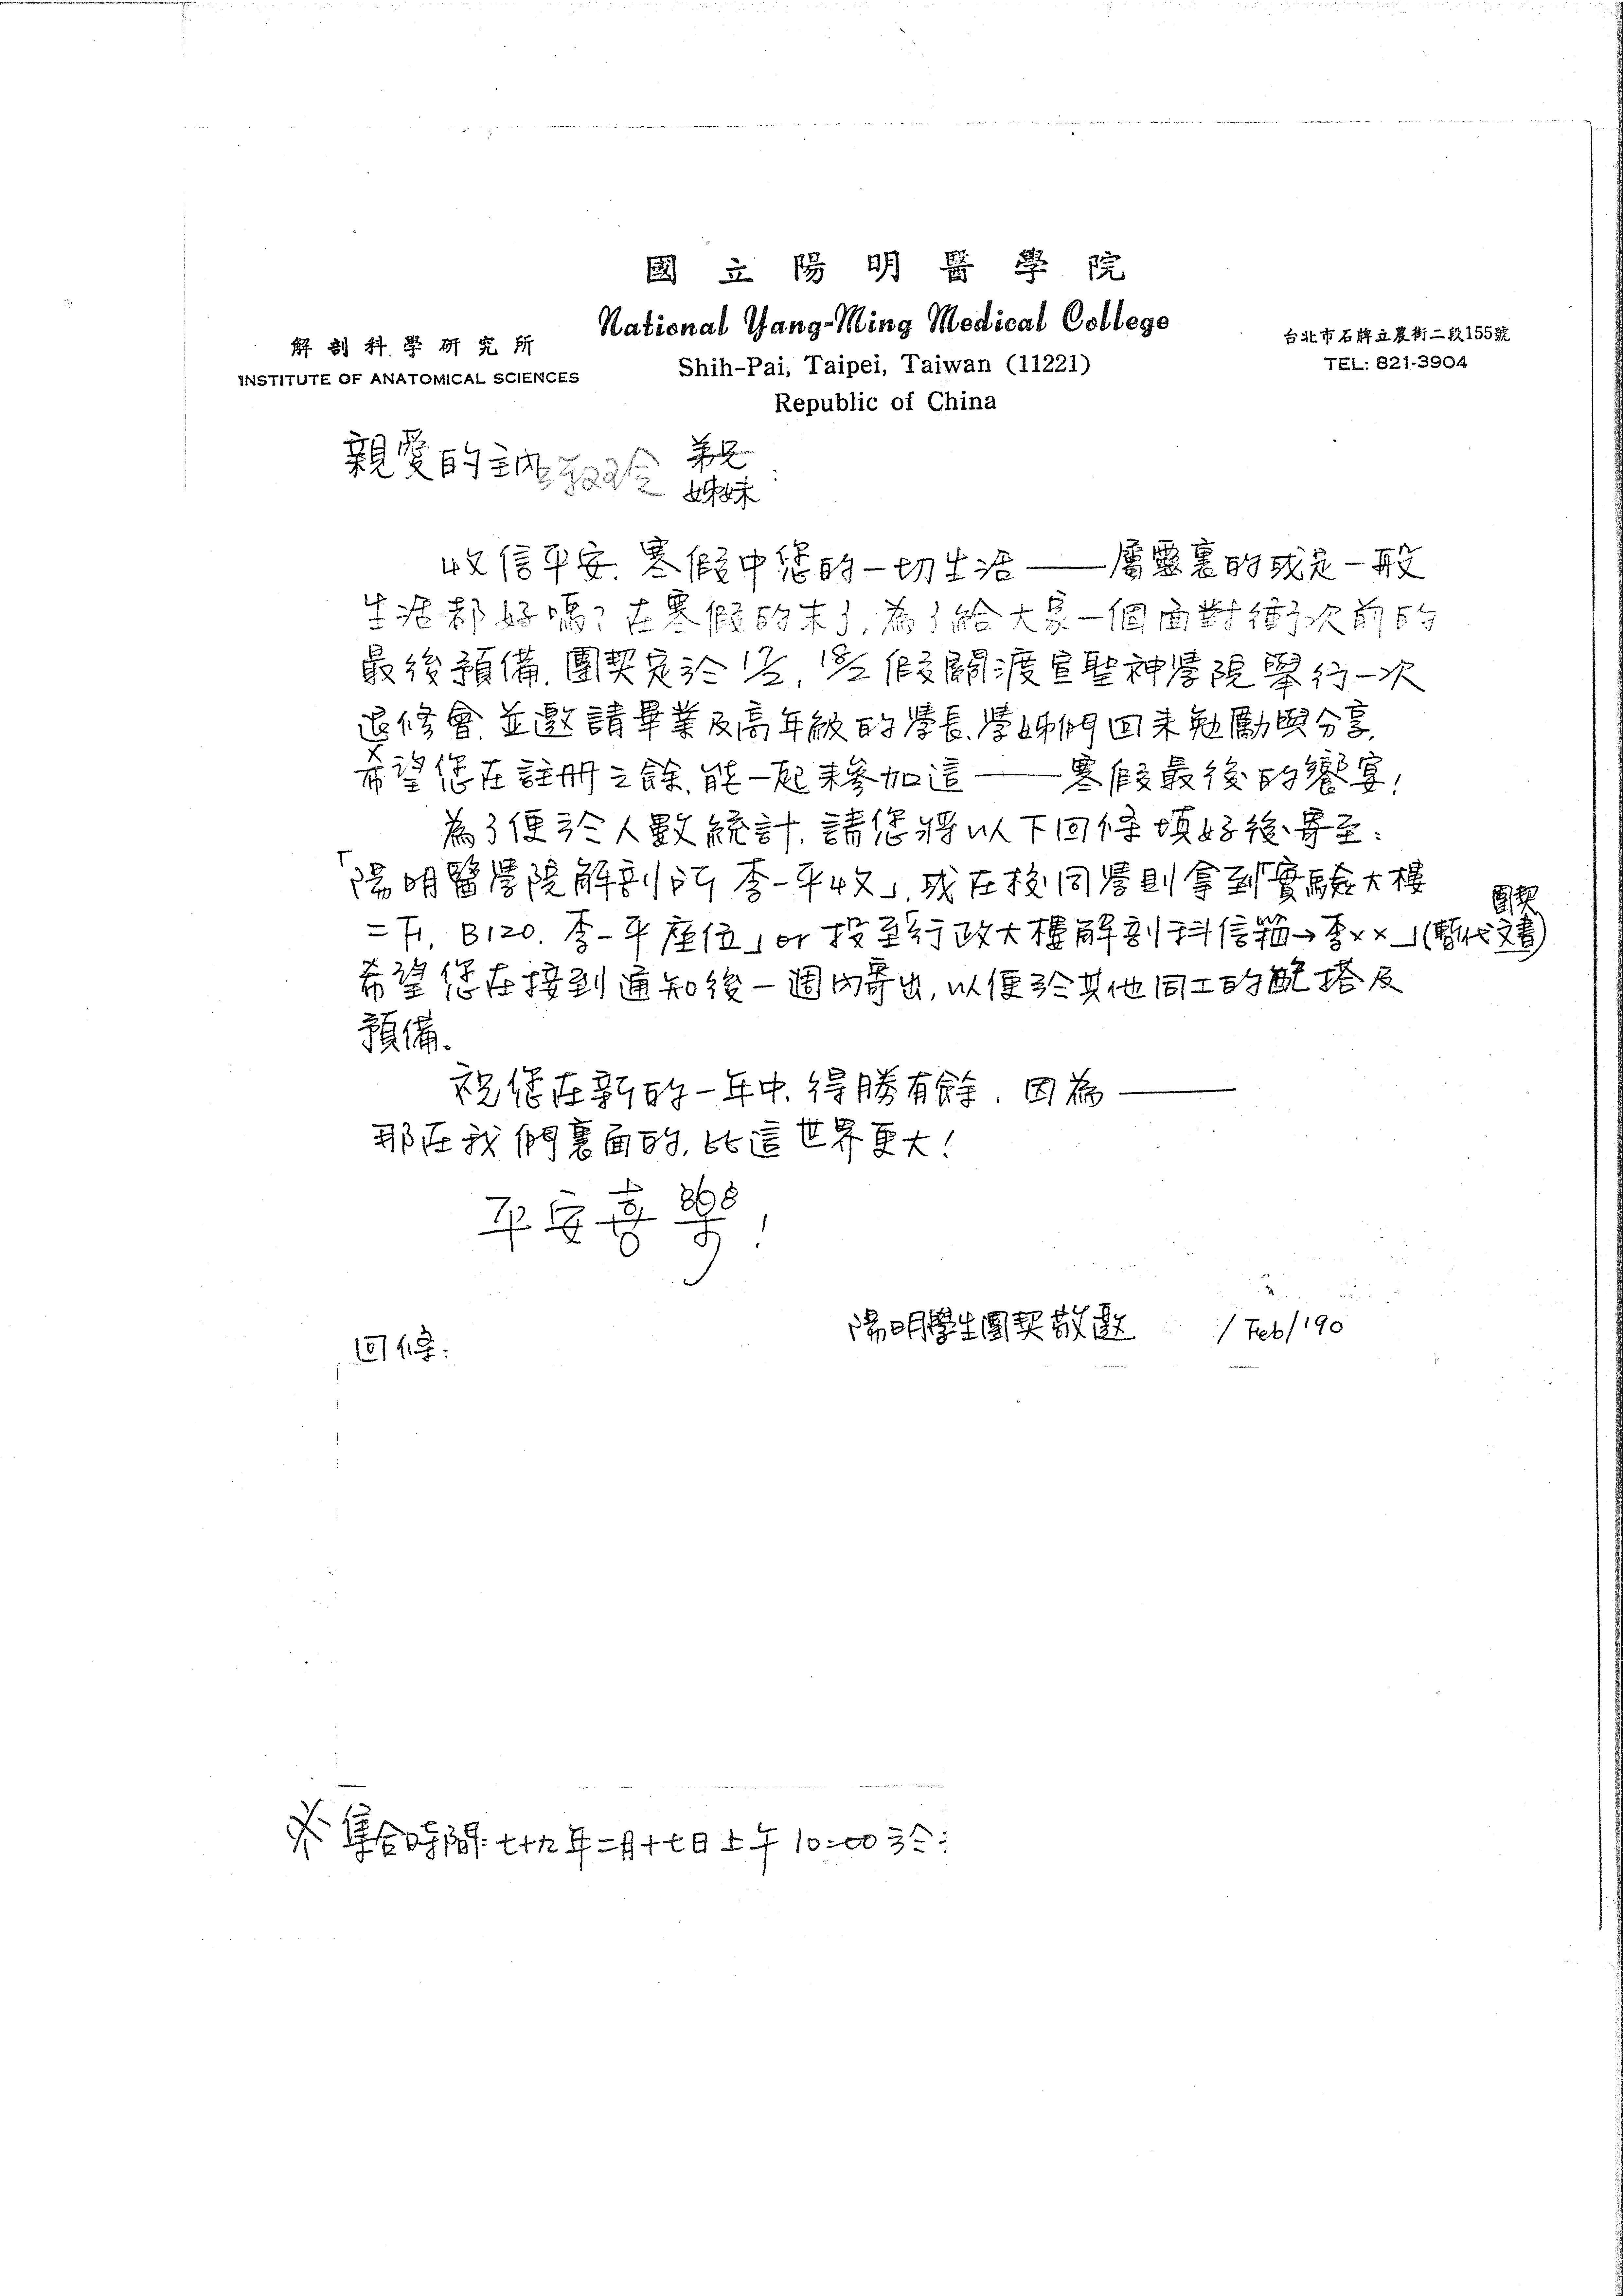 國立陽明醫學院
National Yang-Ming Medical College
解剖科學研究所
INSTITUTE OF ANATOMICAL SCIENCES
Shih-Pai, Taipei, Taiwan (11221)
Republic of China
台北市石牌立農街二段155號
TEL: 821-3904
親愛的主內 弟兄
姊妹:
收信平安. 寒假中您的一切生活——屬靈裏的或是一般
生活都好嗎? 在寒假的末了, 為了給大家一個面對衝次前的
最後預備. 團契定於 17/2, 18/2 假關渡宣聖神學院舉行一次
退修會. 並邀請畢業及高年級的學長、學姊們回來勉勵與分享.
希望您在註冊之餘, 能一起來參加這——寒假最後的饗宴!
為了便於人數統計, 請您將以下回條填好後寄至:
「陽明醫學院解剖所 李一平收」, 或在校同學則拿到「實驗大樓
二下, B120. 李一平座位」or 投至「行政大樓解剖科信箱→李××」(暫代團契文書)
希望您在接到通知後一週內寄出, 以便於其他同工的配搭及
預備。
祝您在新的一年中, 得勝有餘. 因為——
那在我們裏面的, 比這世界更大!
平安喜樂!
陽明學生團契敬邀 /Feb/'90
回條:
※集合時間: 七十九年二月十七日上午10:00於: